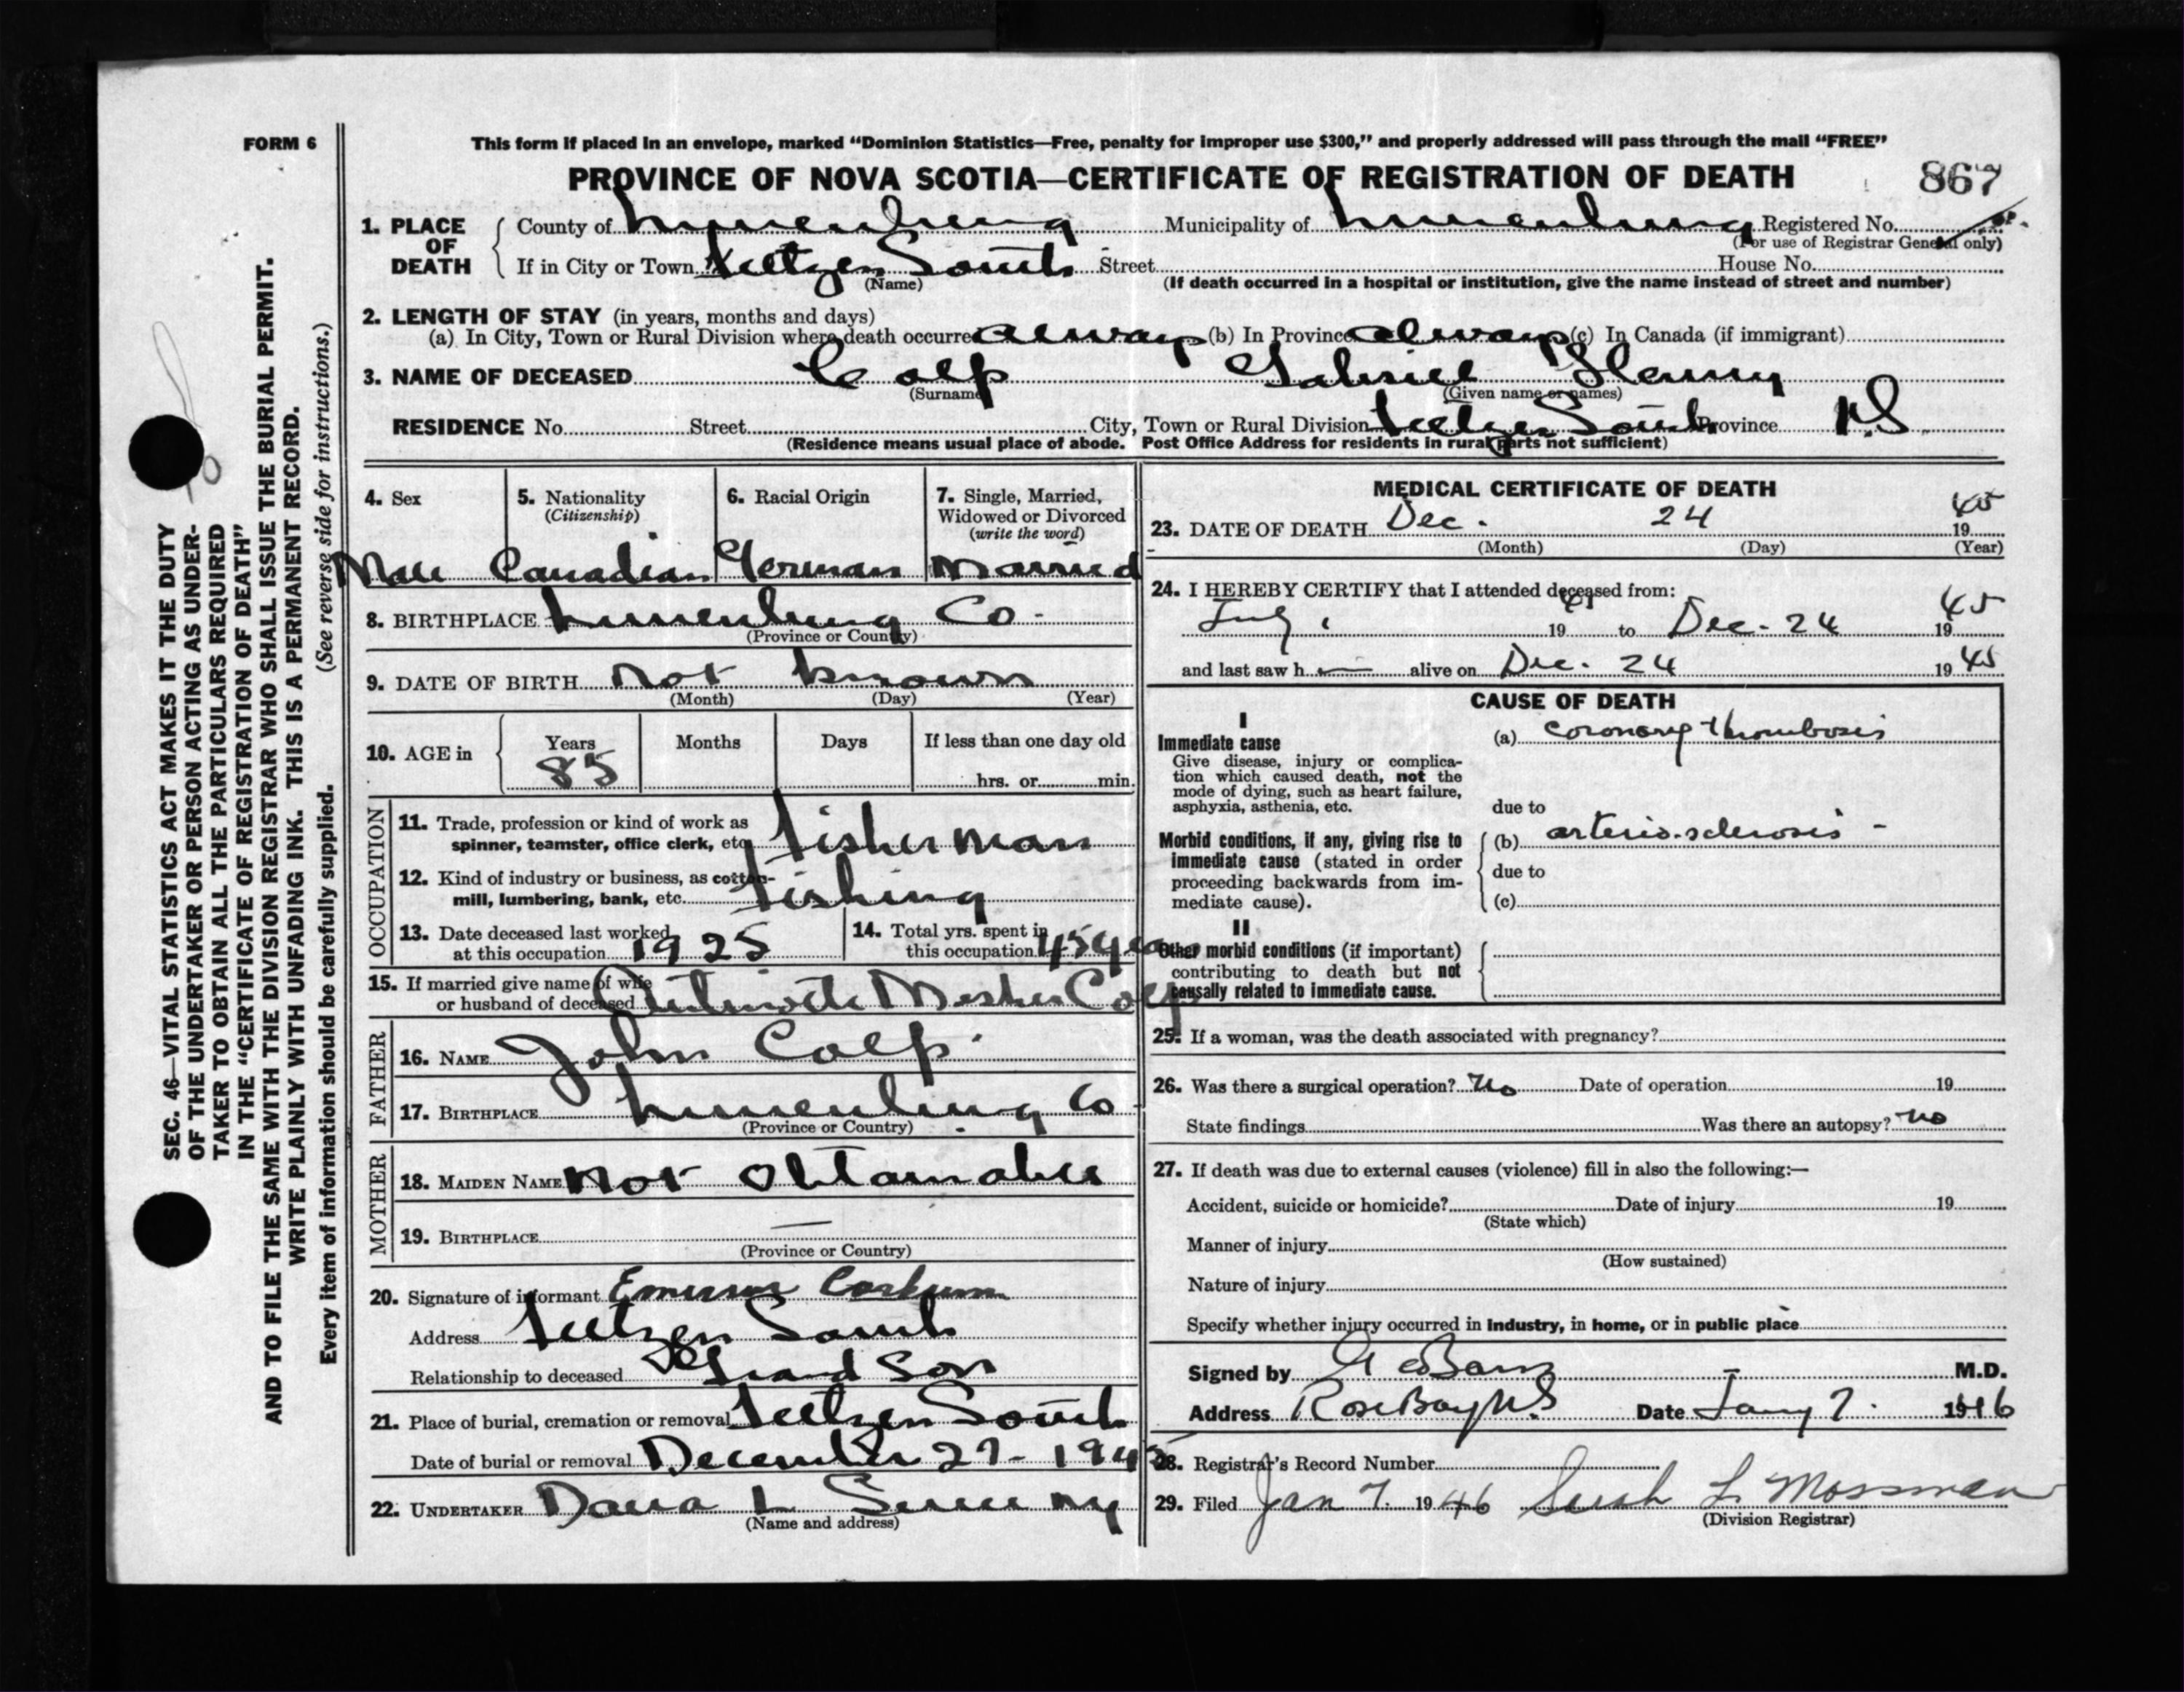 FORM 6
This form if placed in an envelope, marked “Dominion Statistics—Free, penalty for improper use $300,” and properly addressed will pass through the mail “FREE”
PROVINCE OF NOVA SCOTIA—CERTIFICATE OF REGISTRATION OF DEATH
867
1. PLACE OF DEATH County of Lunenburg Municipality of Lunenburg Registered No.
(For use of Registrar General only)
If in City or Town Feltzen South Street House No.
(Name) (If death occurred in a hospital or institution, give the name instead of street and number)
2. LENGTH OF STAY (in years, months and days)
(a) In City, Town or Rural Division where death occurred always (b) In Province always (c) In Canada (if immigrant)
3. NAME OF DECEASED Colp Gabriel Henry
(Surname) (Given name or names)
RESIDENCE No. Street City, Town or Rural Division Feltzen South Province N.S
(Residence means usual place of abode. Post Office Address for residents in rural parts not sufficient)
4. Sex 5. Nationality 6. Racial Origin 7. Single, Married,
(Citizenship) Widowed or Divorced
(write the word)
Male Canadian German Married
8. BIRTHPLACE Lunenburg Co.
(Province or Country)
9. DATE OF BIRTH Not known
(Month) (Day) (Year)
10. AGE in Years Months Days If less than one day old
85 hrs. or min.
OCCUPATION
11. Trade, profession or kind of work as
spinner, teamster, office clerk, etc. Fisherman
12. Kind of industry or business, as cotton-
mill, lumbering, bank, etc. Fishing
13. Date deceased last worked
at this occupation 1925
14. Total yrs. spent in
this occupation 45 years
15. If married give name of wife
or husband of deceased Mosher Colp
FATHER
16. NAME John Colp
17. BIRTHPLACE Lunenburg Co
(Province or Country)
MOTHER
18. MAIDEN NAME Not Obtainable
19. BIRTHPLACE —
(Province or Country)
20. Signature of informant Corkum
Address Feltzen South
Relationship to deceased Grandson
21. Place of burial, cremation or removal Feltzen South
Date of burial or removal December 27 - 1945
22. UNDERTAKER L
(Name and address)
MEDICAL CERTIFICATE OF DEATH
23. DATE OF DEATH Dec. 24 1945
(Month) (Day) (Year)
24. I HEREBY CERTIFY that I attended deceased from:
July 1941 to Dec. 24 1945
and last saw h im alive on Dec. 24 1945
CAUSE OF DEATH
I
Immediate cause (a) coronary thrombosis
Give disease, injury or complica-
tion which caused death, not the
mode of dying, such as heart failure,
asphyxia, asthenia, etc. due to
Morbid conditions, if any, giving rise to (b) arterio-sclerosis -
immediate cause (stated in order
proceeding backwards from im- due to
mediate cause). (c)
II
Other morbid conditions (if important)
contributing to death but not
causally related to immediate cause.
25. If a woman, was the death associated with pregnancy?
26. Was there a surgical operation? No Date of operation 19
State findings Was there an autopsy? No
27. If death was due to external causes (violence) fill in also the following:—
Accident, suicide or homicide? Date of injury 19
(State which)
Manner of injury
(How sustained)
Nature of injury
Specify whether injury occurred in industry, in home, or in public place
Signed by M.D.
Address Rose Bay N.S Date Jany 7. 1946
28. Registrar's Record Number
29. Filed Jan 7. 1946 L. Mossman
(Division Registrar)
SEC. 46—VITAL STATISTICS ACT MAKES IT THE DUTY
OF THE UNDERTAKER OR PERSON ACTING AS UNDER-
TAKER TO OBTAIN ALL THE PARTICULARS REQUIRED
IN THE “CERTIFICATE OF REGISTRATION OF DEATH”
AND TO FILE THE SAME WITH THE DIVISION REGISTRAR WHO SHALL ISSUE THE BURIAL PERMIT.
WRITE PLAINLY WITH UNFADING INK. THIS IS A PERMANENT RECORD.
Every item of information should be carefully supplied. (See reverse side for instructions.)